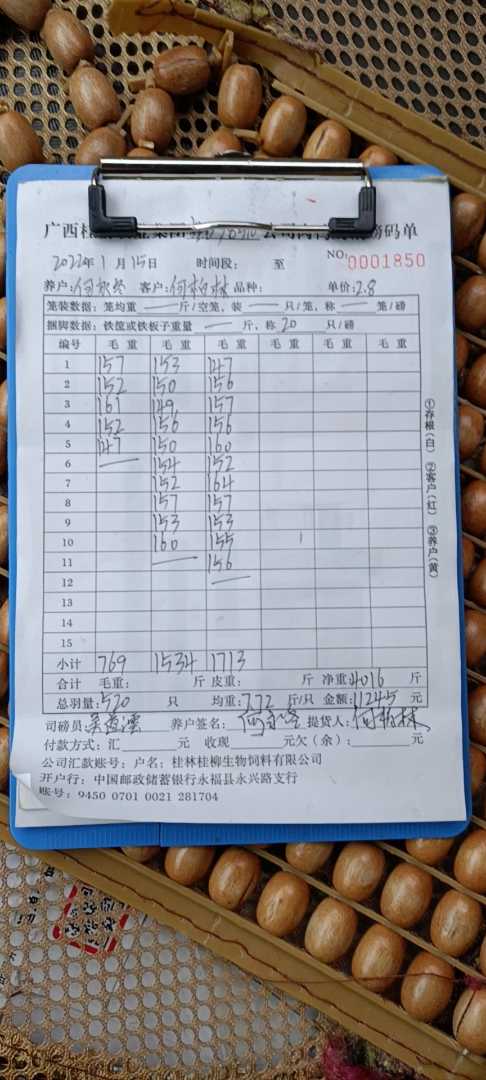 广西桂 集团 公司 磅码单
2022年1月15日 时间段: 至 NO:0001850
养户: 客户:何柏林 品种: 单价:2.8
笼装数据:笼均重 — 斤/空笼,装 — 只/笼,称 — 笼/磅
捆脚数据:铁筐或铁板子重量 — 斤,称 20 只/磅
编号 毛重 毛重 毛重 毛重 毛重 毛重
1 157 153 147
2 152 150 156
3 161 149 157
4 152 156 156
5 147 150 160
6 — 154 152
7 152 164
8 157 157
9 153 153
10 160 155
11 — 156
12 —
13
14
15
小计 769 1534 1713
合计 毛重: 斤 皮重: 斤 净重:4016 斤
总羽量:520 只 均重:7.72 斤/只 金额:11245 元
司磅员: 养户签名: 提货人:何柏林
付款方式:汇 元 收现 元欠(余): 元
公司汇款账号:户名:桂林桂柳生物饲料有限公司
开户行:中国邮政储蓄银行永福县永兴路支行
账号:9450 0701 0021 281704
①存根(白) ②客户(红) ③养户(黄)